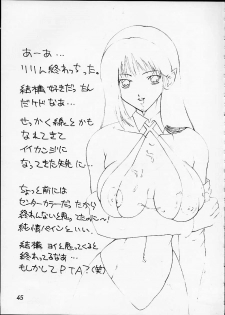 あーあ…
リリム終わっちった。
結構好きだったん
だケドなぁ…
せっかく線とかも
なれてきて
イイカンジに
なってきた矢先に…
ちょっと前には
センターカラーだったから
終わんないと思ってたのにー!
純情パインといい
結構ヨイと思ってくると
終わってるなぁ…
もしかしてPTA?(笑)
45